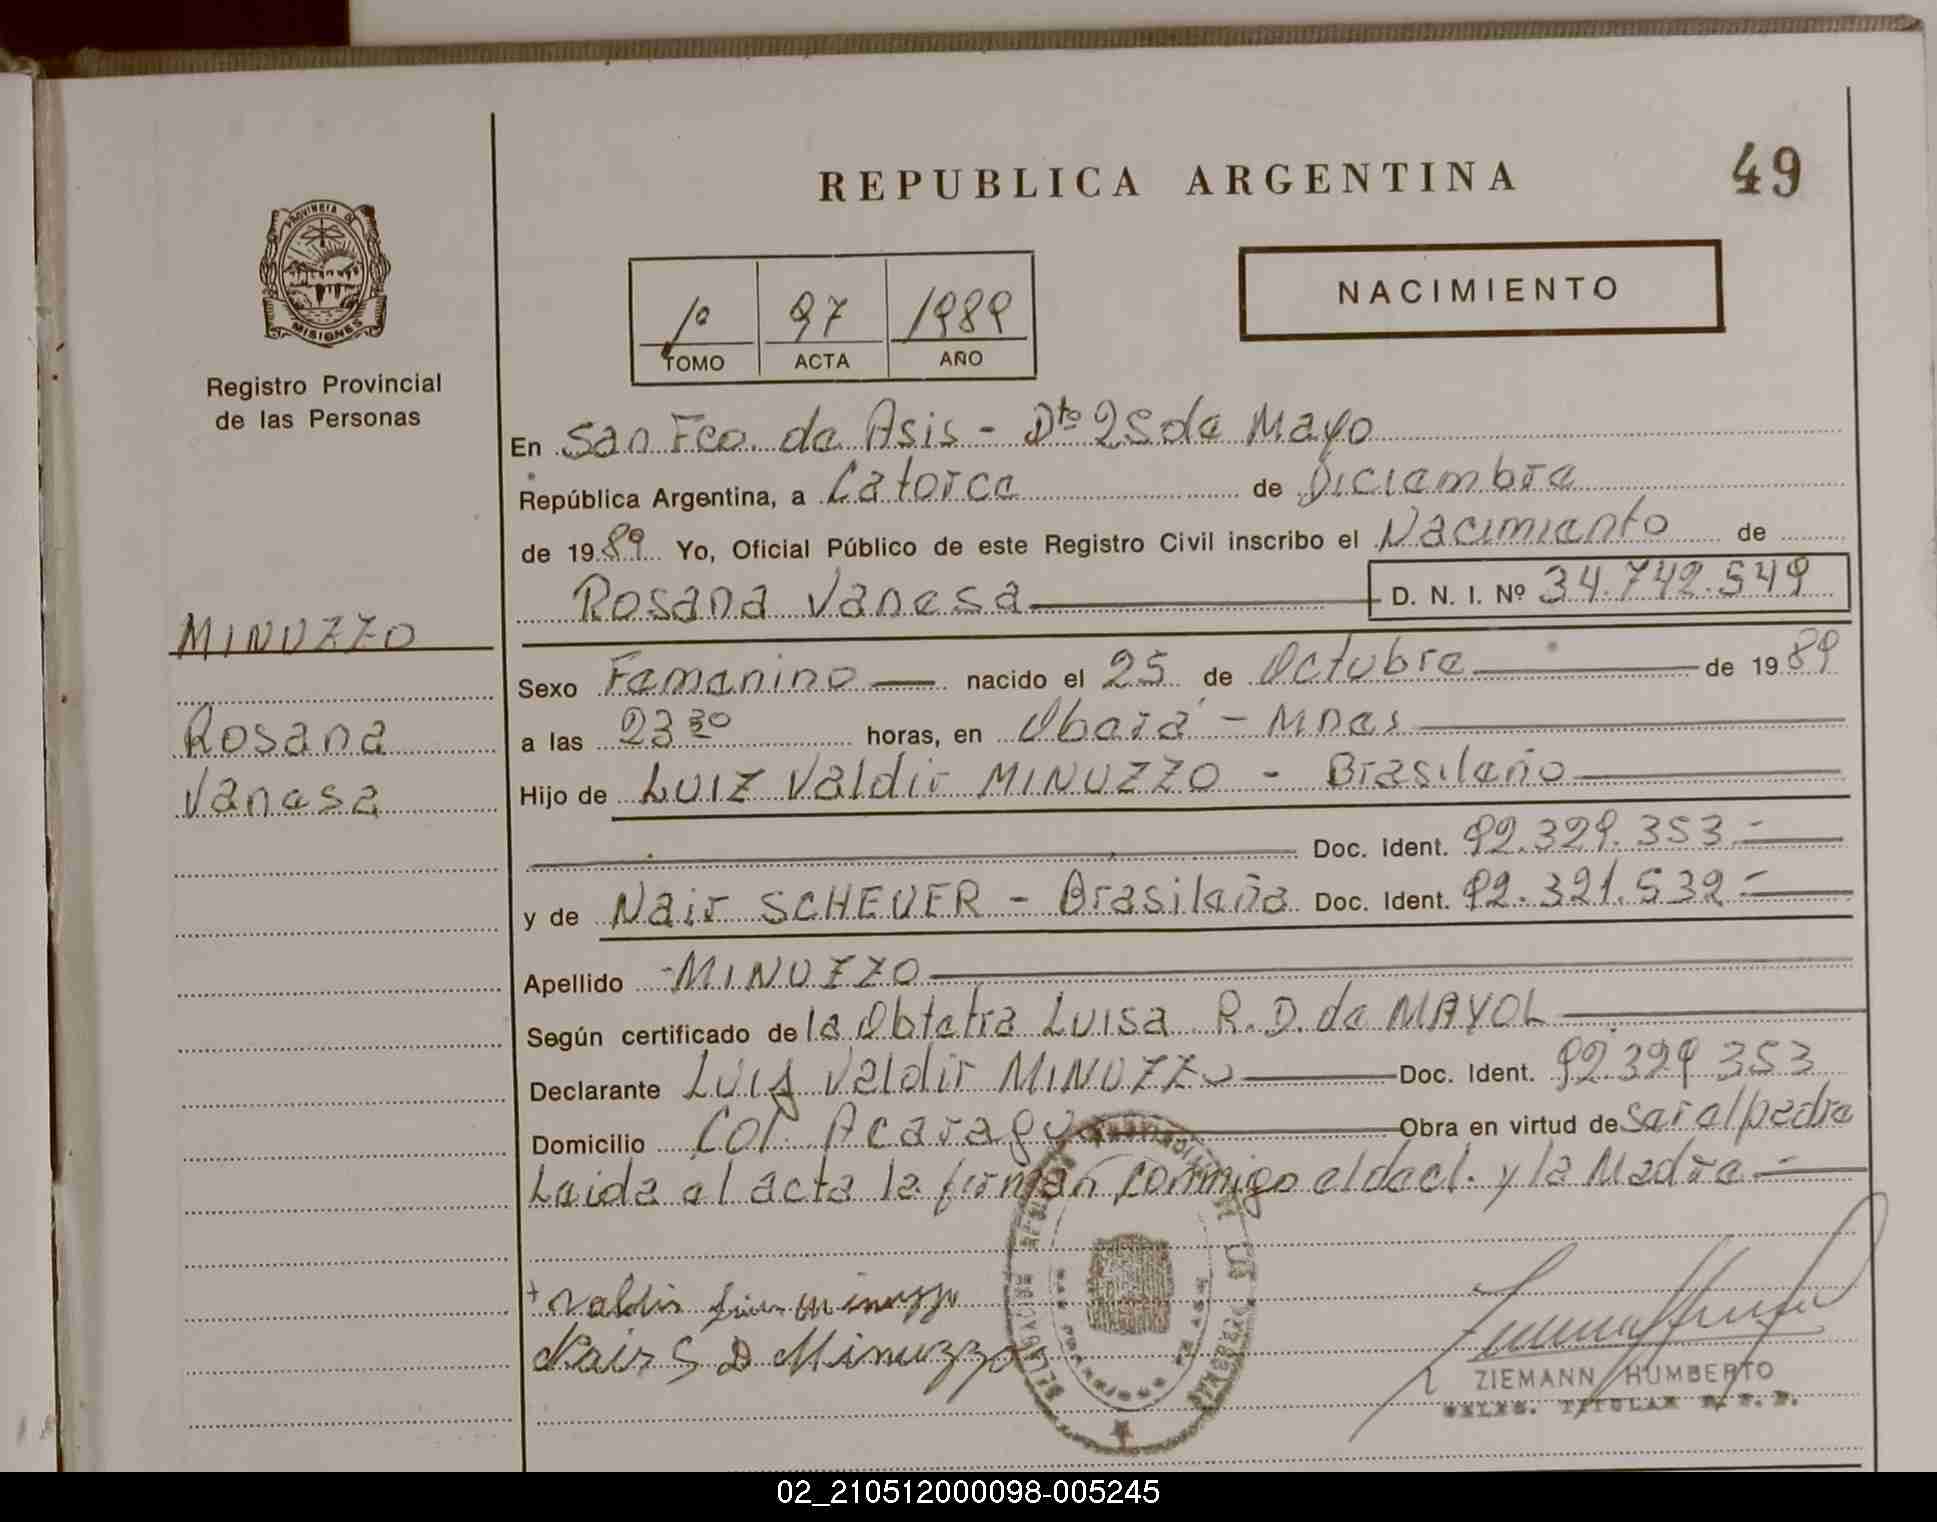 REPUBLICA ARGENTINA
49
PROVINCIA DE
MISIONES
Registro Provincial
de las Personas
1º 97 1989
TOMO ACTA AÑO
NACIMIENTO
En San Fco. de Asis - Dto 25 de Mayo
República Argentina, a Catorce de Diciembre
de 1989 Yo, Oficial Público de este Registro Civil inscribo el Nacimiento de
Rosana Vanesa D. N. I. Nº 34.742.549
MINUZZO
Rosana
Vanesa
Sexo Femenino nacido el 25 de Octubre de 1989
a las 23 30 horas, en Oberá - Mnes
Hijo de LUIZ Valdir MINUZZO - Brasileño
Doc. Ident. 92.329.353.-
y de Nair SCHEUER - Brasileña Doc. Ident. 92.321.532-
Apellido -MINUZZO
Según certificado de la Obtetra Luisa R. D. de MAYOL
Declarante LUIS Valdir MINUZZO Doc. Ident. 92.329 353
Domicilio Col. Acaragua Obra en virtud de ser el padre
Leida el acta la firman conmigo el decl. y la Madre -
+ Valdir Luis minuzzo
Nair S D Minuzzo
ZIEMANN HUMBERTO
DELEG. TITULAR R. P. P.
02_210512000098-005245